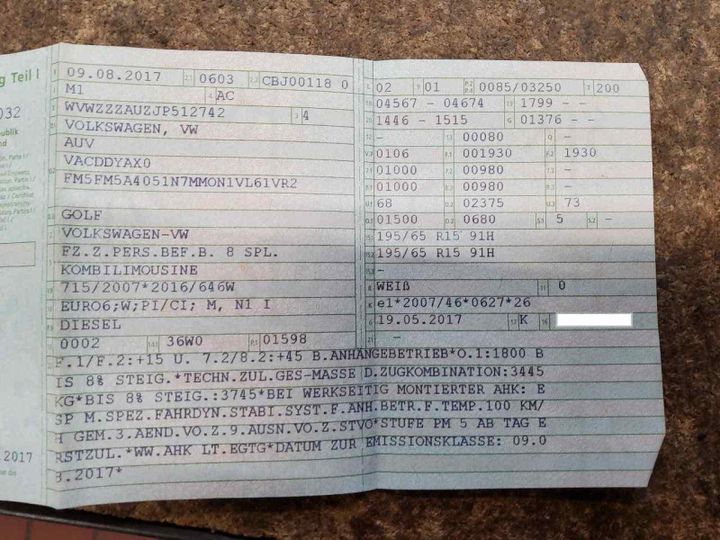 g Teil I
032
publik
nd
2017
09.08.2017 0603 CBJ00118 0
M1 AC
WVWZZZAUZJP512742 4
VOLKSWAGEN, VW
AUV
VACDDYAX0
FM5FM5A4051N7MMON1VL61VR2
GOLF
VOLKSWAGEN-VW
FZ.Z.PERS.BEF.B. 8 SPL.
KOMBILIMOUSINE
715/2007*2016/646W
EURO6;W;PI/CI; M, N1 I
DIESEL
0002 36W0 01598
02 01 0085/03250 200
04567 - 04674 1799 - -
1446 - 1515 01376 - -
- 00080 -
0106 001930 1930
01000 00980 -
01000 00980 -
68 02375 73
01500 0680 5 -
195/65 R15 91H
195/65 R15 91H
-
WEIß 0
e1*2007/46*0627*26
19.05.2017 K
-
F.1/F.2:+15 U. 7.2/8.2:+45 B.ANHÄNGEBETRIEB*O.1:1800 B
IS 8% STEIG.*TECHN.ZUL.GES-MASSE D.ZUGKOMBINATION:3445
KG*BIS 8% STEIG.:3745*BEI WERKSEITIG MONTIERTER AHK: E
SP M.SPEZ.FAHRDYN.STABI.SYST.F.ANH.BETR.F.TEMP.100 KM/
H GEM.3.AEND.VO.Z.9.AUSN.VO.Z.STVO*STUFE PM 5 AB TAG E
RSTZUL.*WW.AHK LT.EGTG*DATUM ZUR EMISSIONSKLASSE: 09.0
8.2017*